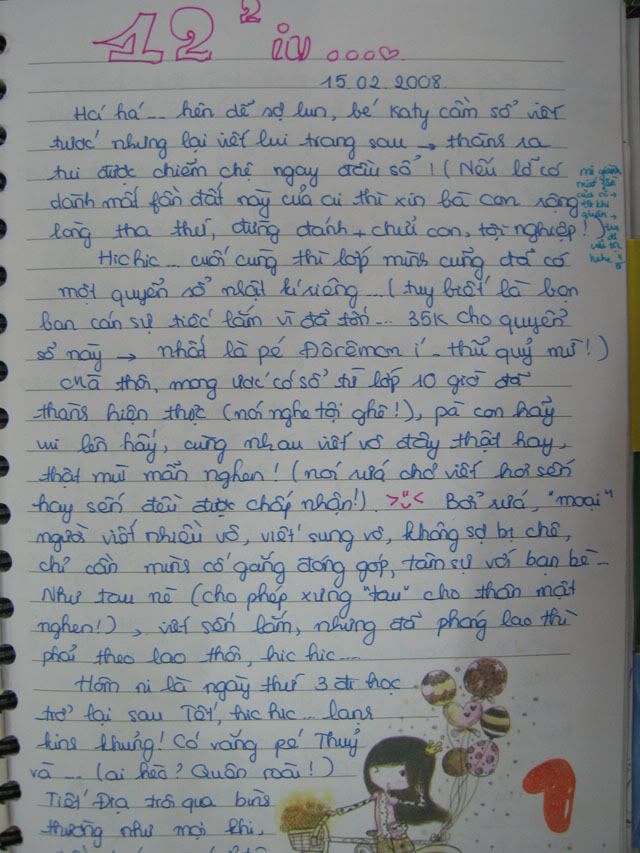 12² iu ....
15.02.2008
Há há... hên dễ sợ lun, bé Katy cầm sổ viết
tước nhưng lại viết lui trang sau → thàns ra
tui được chiếm chệ ngay đầu sổ! (Nếu lỡ có
dành mất fần đất này của ai thì xin bà con rộng
lòng tha thứ, đừng đánh + chửi con, tội nghiệp!)
Hic hic... cuối cùng thì lớp mìns cũng đã có
một quyển sổ nhật kí riêng... (tuy biết là bọn
ban cán sự tiếc lắm vì đã tốn... 35K cho quyển
sổ này → nhất là pé Đôrêmon í - thủ quỷ mừ!)
Mà thôi, mong ước có sổ từ lớp 10 giờ đã
thàns hiện thực (nói nghe tội ghê!), pà con hãy
vui lên hấy, cùng nhau viết vô đây thật hay,
thật mùi mẫn nghen! (nói rứa chớ viết hơi sến
hay sến đều được chấp nhận!) >"< Bởi rứa, "moại"
người viết nhiều vô, viết sung vô, không sợ bị chê,
chỉ cần mìns cố gắng đóng góp, tâm sự với bạn bè -
Như tau nè (cho phép xưng "tau" cho thân mật
nghen!), viết sến lắm, nhưng đã phóng lao thì
phải theo lao thôi, hic hic...
Hôm ni là ngày thứ 3 đi học
trở lại sau Tết, hic hic... lans
kins khủng! Có vắng pé Thuỷ
và ... (ai hèo? Quân roài!)
Tiết Địa trôi qua bìns
thường như mọi khi,
1